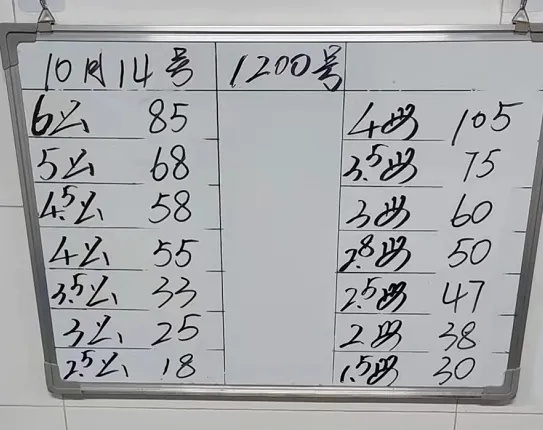 10月14号 1200号
6公 85 4母 105
5公 68 3.5母 75
4.5公 58 3母 60
4公 55 2.8母 50
3.5公 33 2.5母 47
3公 25 2母 38
2.5公 18 1.5母 30